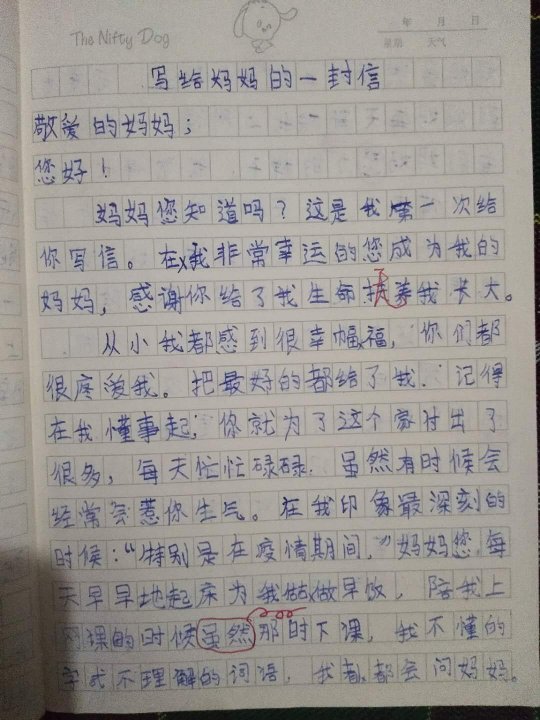 The Nifty Dog
年 月 日
星期 天气
写给妈妈的一封信
敬爱的妈妈；
您好！
妈妈您知道吗？这是我第一次给
你写信。在我非常幸运的您成为我的
妈妈，感谢你给了我生命扶养我长大。
从小我都感到很幸幅福，你们都
很疼爱我。把最好的都给了我．记得
在我懂事起；你就为了这个家付出了
很多，每天忙忙碌碌．虽然有时候会
经常会惹你生气。在我印象最深刻的
时候：“特别是在疫情期间，”妈妈您每
天早早地起床为我做做早饭，陪我上
网课的时候虽然那时下课，我不懂的
字或不理解的词语，我都都会问妈妈。